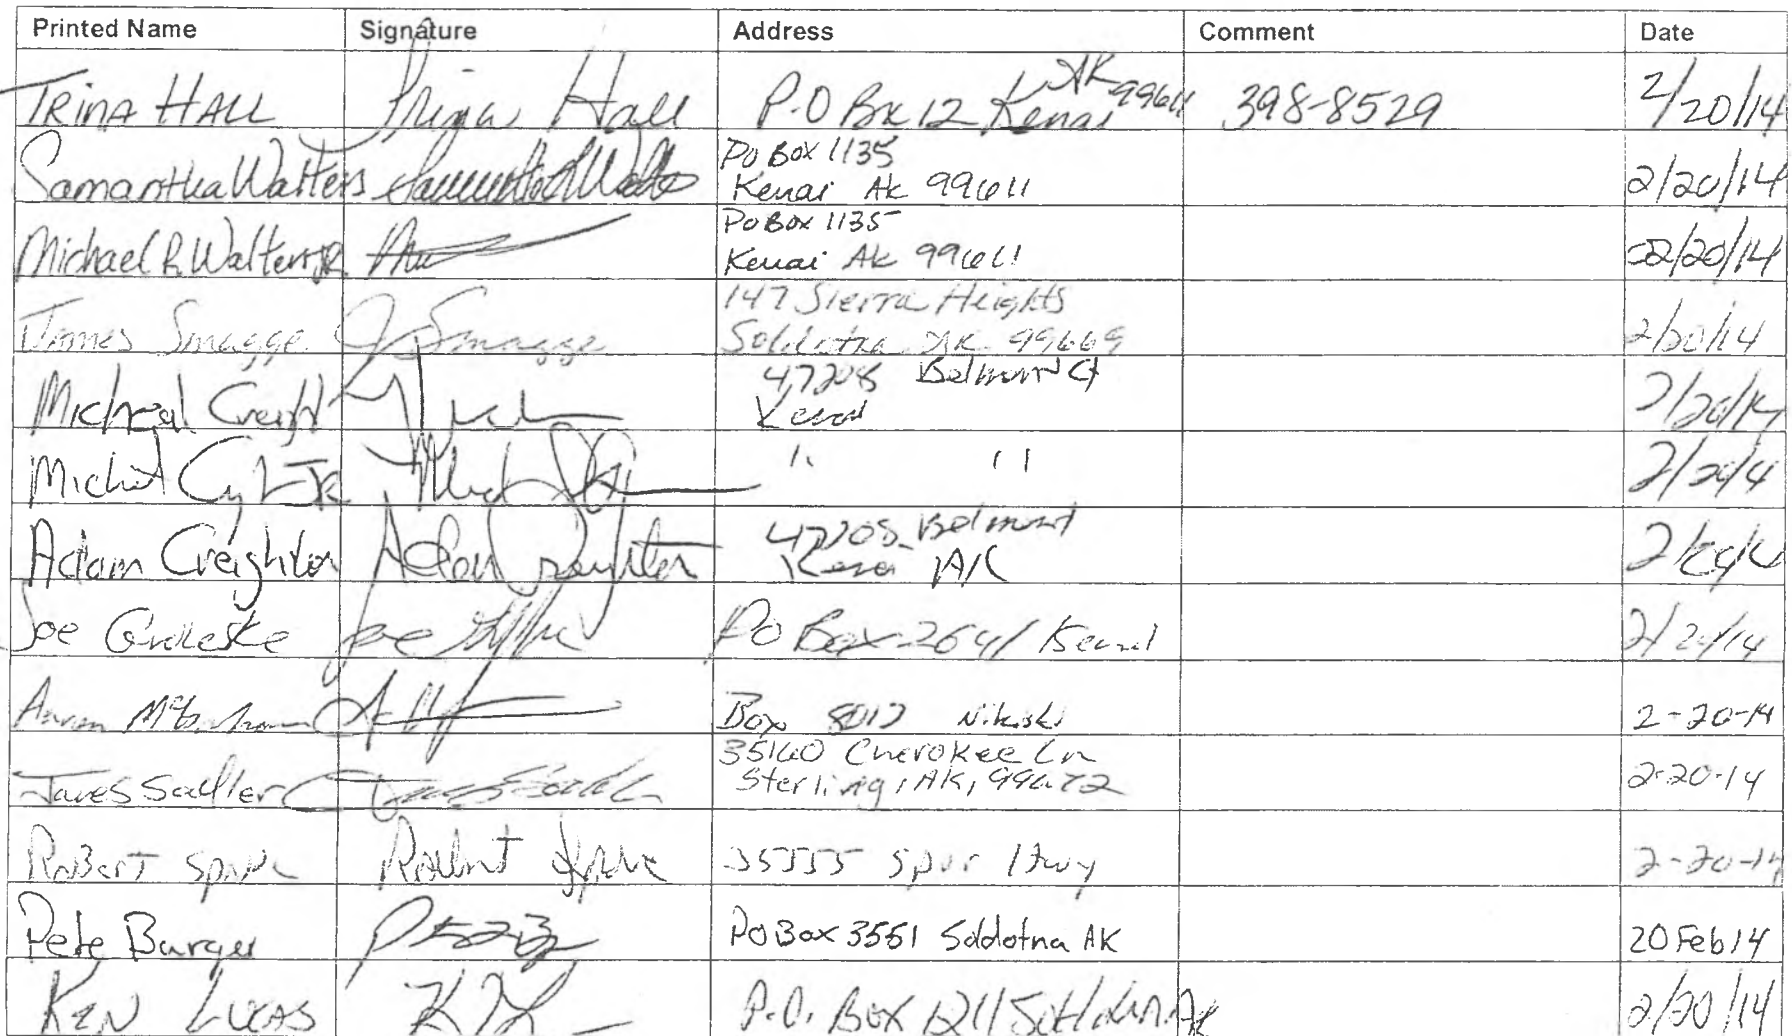 Printed Name Signature Address Comment Date
TRINA HALL Trina Hall P.O Box 12 Kenai AK 99611 398-8529 2/20/14
Samantha Walters Samantha Walters Po Box 1135
Kenai Ak 99611 2/20/14
Michael R Walters JR Po Box 1135
Kenai Ak 99611 02/20/14
James Smagge J Smagge 147 Sierra Heights
Soldotna AK 99669 2/20/14
Micheal 47205 Belmont Ct
Kenai 2/20/14
" " 2/20/14
Adam Creighton Adam Creighton 47205 Belmont
Kenai AK 2/20/14
Joe Joe Po Box 2641 Kenai 2/20/14
Aaron Box Nikiski 2-20-14
James Sadler James Sadler 35160 Cherokee Ln
Sterling, AK, 99672 2-20-14
Robert Robert 35555 Spur Hwy 2-20-14
Pete Burger Po Box 3551 Soldotna AK 20 Feb 14
KEN LUCAS P.O. Box 1211 AK 2/20/14